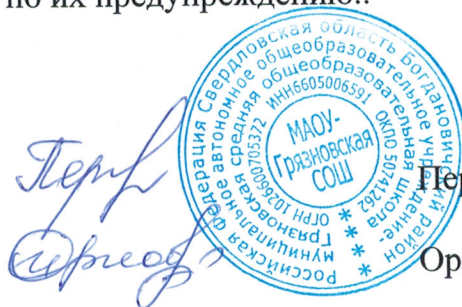 по их предупреждению..
Российская Федерация Свердловская область Богданович ский район
муниципальное автономное общеобразовательное учреждение-
Грязновская средняя общеобразовательная школа
ОГРН 1026600705372 ИНН6605006591 ОКПО 50741262
МАОУ-
Грязновская
СОШ
Пер
Ор